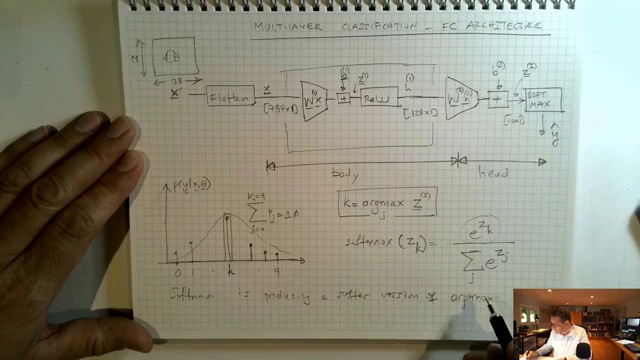 MULTILAYER CLASSIFICATION - FC ARCHITECTURE
28
28
X
Flatten
x
[784x1]
W(1) x
b(1)
+
z(1)
ReLU
h(1)
[128x1]
W(2) h(1)
b(2)
+
z(2)
[10x1]
SOFT
MAX
ŷ
body
head
p(y|x,θ)
K=9
∑ Pj = 1.0
j=0
0 1 k 9
k = argmax z(2)
j
softmax (zk) = e^zk
∑ e^zj
j
Softmax is producing a softer version of argmax